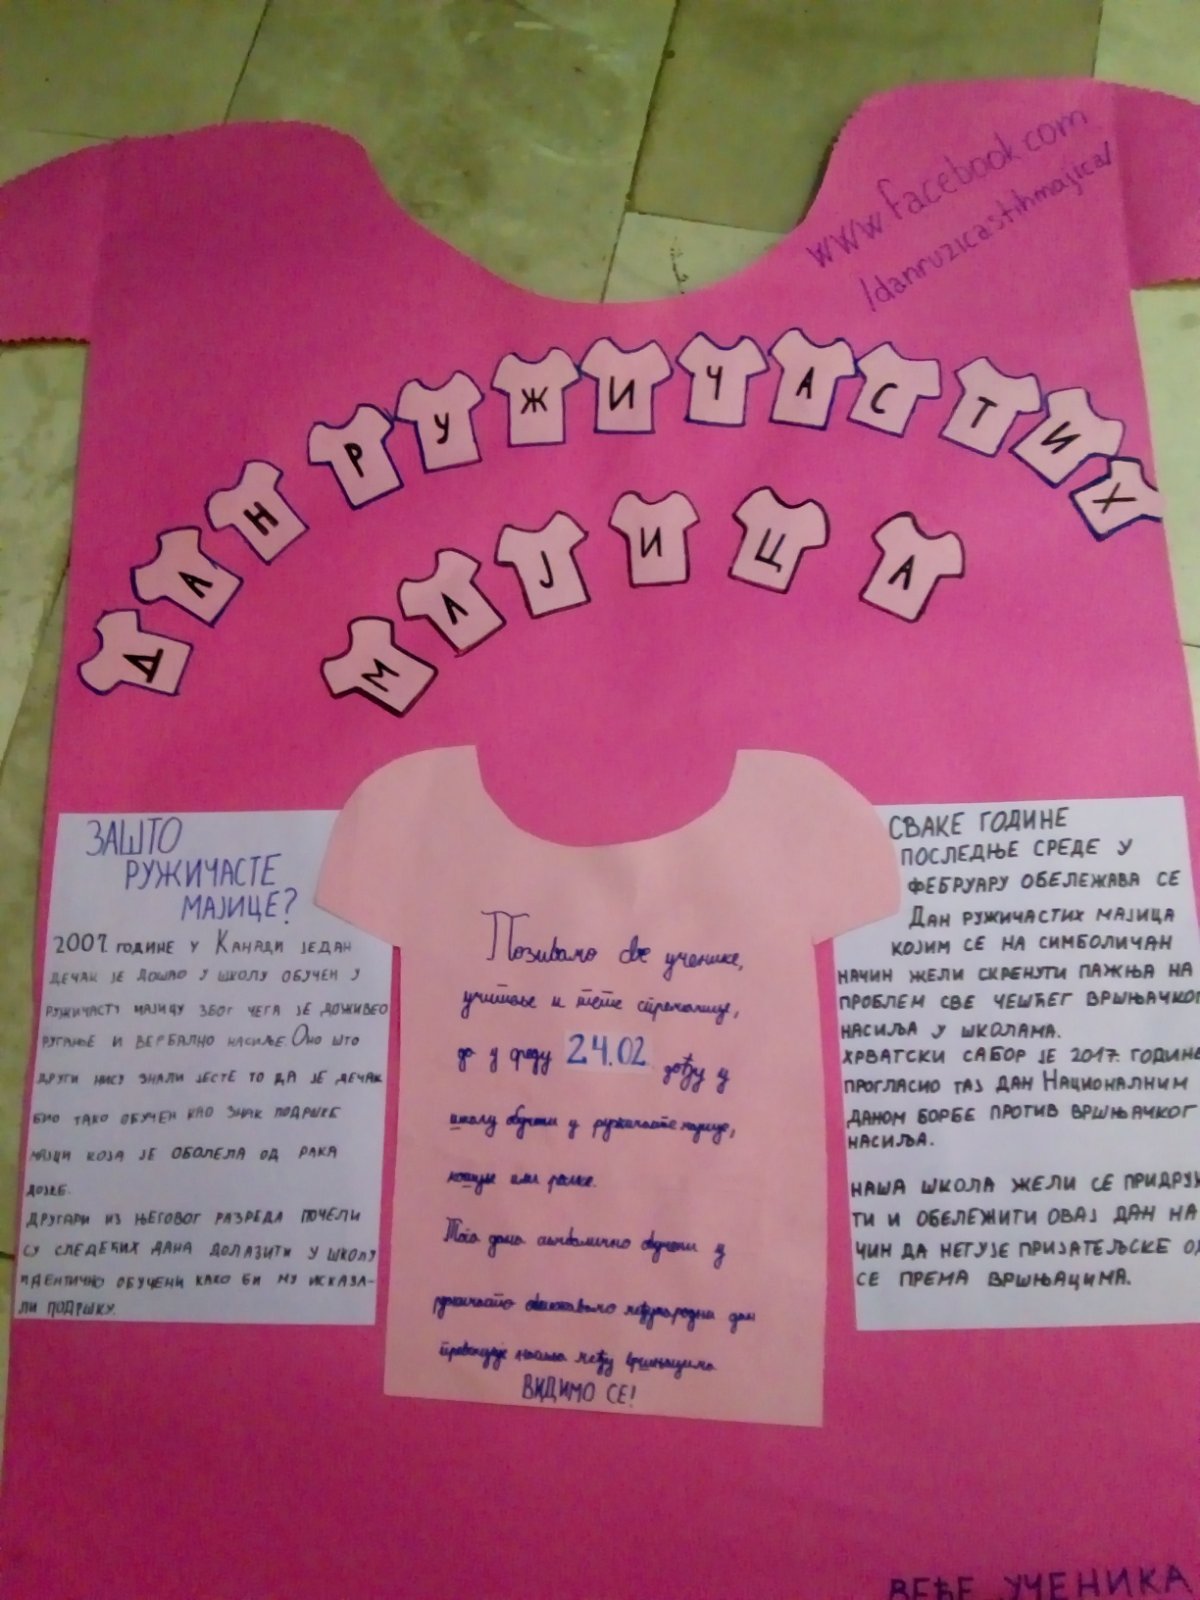 www.facebook.com
/danruzicastihmajica/
ДАН РУЖИЧАСТИХ
МАЈИЦА
ЗАШТО
РУЖИЧАСТЕ
МАЈИЦЕ?
2007. ГОДИНЕ У КАНАДИ ЈЕДАН
ДЕЧАК ЈЕ ДОШАО У ШКОЛУ ОБУЧЕН У
РУЖИЧАСТУ МАЈИЦУ ЗБОГ ЧЕГА ЈЕ ДОЖИВЕО
РУГАЊЕ И ВЕРБАЛНО НАСИЉЕ. ОНО ШТО
ДРУГИ НИСУ ЗНАЛИ ЈЕСТЕ ТО ДА ЈЕ ДЕЧАК
БИО ТАКО ОБУЧЕН КАО ЗНАК ПОДРШКЕ
МАЈЦИ КОЈА ЈЕ ОБОЛЕЛА ОД РАКА
ДОЈКЕ.
ДРУГАРИ ИЗ ЊЕГОВОГ РАЗРЕДА ПОЧЕЛИ
СУ СЛЕДЕЋИХ ДАНА ДОЛАЗИТИ У ШКОЛУ
ИДЕНТИЧНО ОБУЧЕНИ КАКО БИ МУ ИСКАЗА-
ЛИ ПОДРШКУ.
Позивамо све ученике,
учитеље и тете спремачице,
да у среду 24.02. дођу у
школу обучени у ружичасте мајице,
кошуље или ролке.
Тога дана симболично обучени у
ружичасто обележавамо међународни дан
превенције насиља међу вршњацима.
ВИДИМО СЕ!
СВАКЕ ГОДИНЕ
ПОСЛЕДЊЕ СРЕДЕ У
ФЕБРУАРУ ОБЕЛЕЖАВА СЕ
ДАН РУЖИЧАСТИХ МАЈИЦА
КОЈИМ СЕ НА СИМБОЛИЧАН
НАЧИН ЖЕЛИ СКРЕНУТИ ПАЖЊА НА
ПРОБЛЕМ СВЕ ЧЕШЋЕГ ВРШЊАЧКОГ
НАСИЉА У ШКОЛАМА.
ХРВАТСКИ САБОР ЈЕ 2017. ГОДИНЕ
ПРОГЛАСИО ТАЈ ДАН НАЦИОНАЛНИМ
ДАНОМ БОРБЕ ПРОТИВ ВРШЊАЧКОГ
НАСИЉА.
НАША ШКОЛА ЖЕЛИ СЕ ПРИДРУЖ
ТИ И ОБЕЛЕЖИТИ ОВАЈ ДАН НА
ЧИН ДА НЕГУЈЕ ПРИЈАТЕЉСКЕ ОД
СЕ ПРЕМА ВРШЊАЦИМА.
ВЕЋЕ УЧЕНИКА